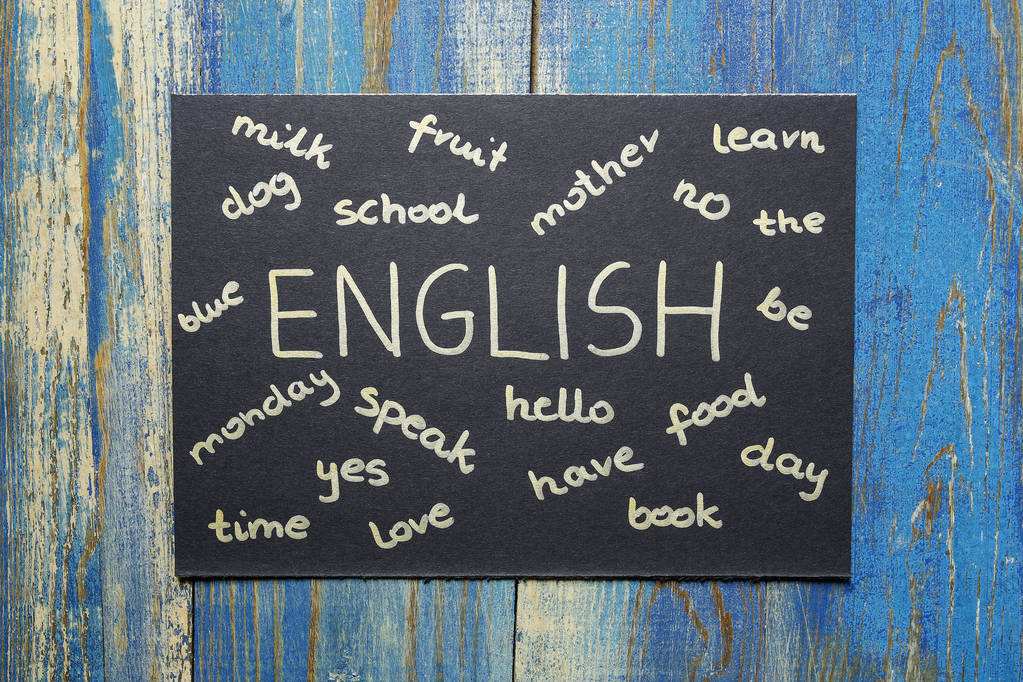 milk fruit mother learn
dog school no the
ENGLISH
blue be
monday speak hello food
yes have day
time love book